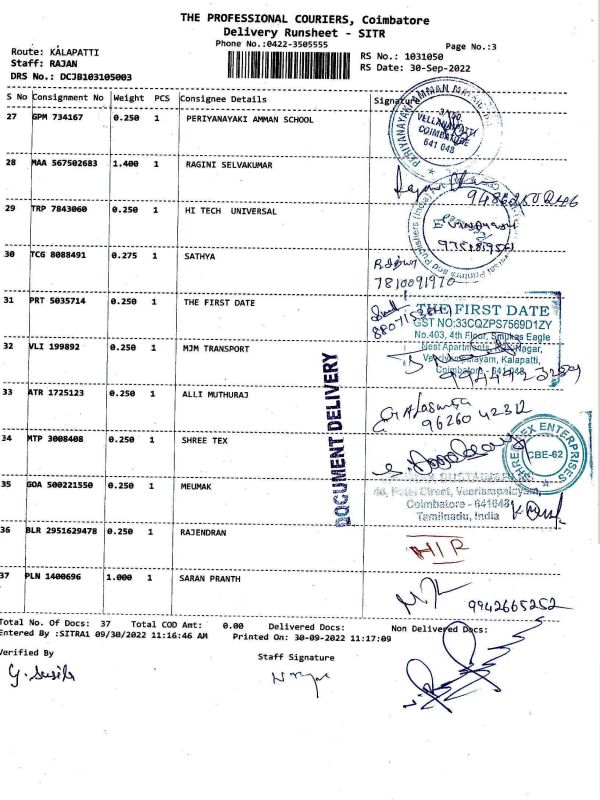 THE PROFESSIONAL COURIERS, Coimbatore
Delivery Runsheet - SITR
Phone No.:0422-3505555
Page No.:3
Route: KALAPATTI
RS No.: 1031050
Staff: RAJAN
RS Date: 30-Sep-2022
DRS No.: DCJB103105003
S No Consignment No Weight PCS Consignee Details Signature
27 GPM 734167 0.250 1 PERIYANAYAKI AMMAN SCHOOL
PERIYANAYAKI AMMAN
COIMBATORE
641 048
28 MAA 567502683 1.400 1 RAGINI SELVAKUMAR
29 TRP 7843060 0.250 1 HI TECH UNIVERSAL
30 TCG 8088491 0.275 1 SATHYA
7810091970
31 PRT 5035714 0.250 1 THE FIRST DATE
THE FIRST DATE
GST NO:33CQZPS7569D1ZY
No.403, 4th Floor, Eagle
Nest Kalapatti,
Coimbatore - 641 048
32 VLI 199892 0.250 1 MJM TRANSPORT
33 ATR 1725123 0.250 1 ALLI MUTHURAJ
96260 42312
34 MTP 3008408 0.250 1 SHREE TEX
SHREE TEX ENTERPRISES
CBE-62
DOCUMENT DELIVERY
35 GOA 500221550 0.250 1 MEUMAK
Street, Veeriampalayam,
Coimbatore - 641048
Tamilnadu, India
36 BLR 2951629478 0.250 1 RAJENDRAN
37 PLN 1400696 1.000 1 SARAN PRANTH
9942665252
Total No. Of Docs: 37 Total COD Amt: 0.00 Delivered Docs: Non Delivered Docs:
Entered By :SITRA1 09/30/2022 11:16:46 AM Printed On: 30-09-2022 11:17:09
Verified By
Staff Signature